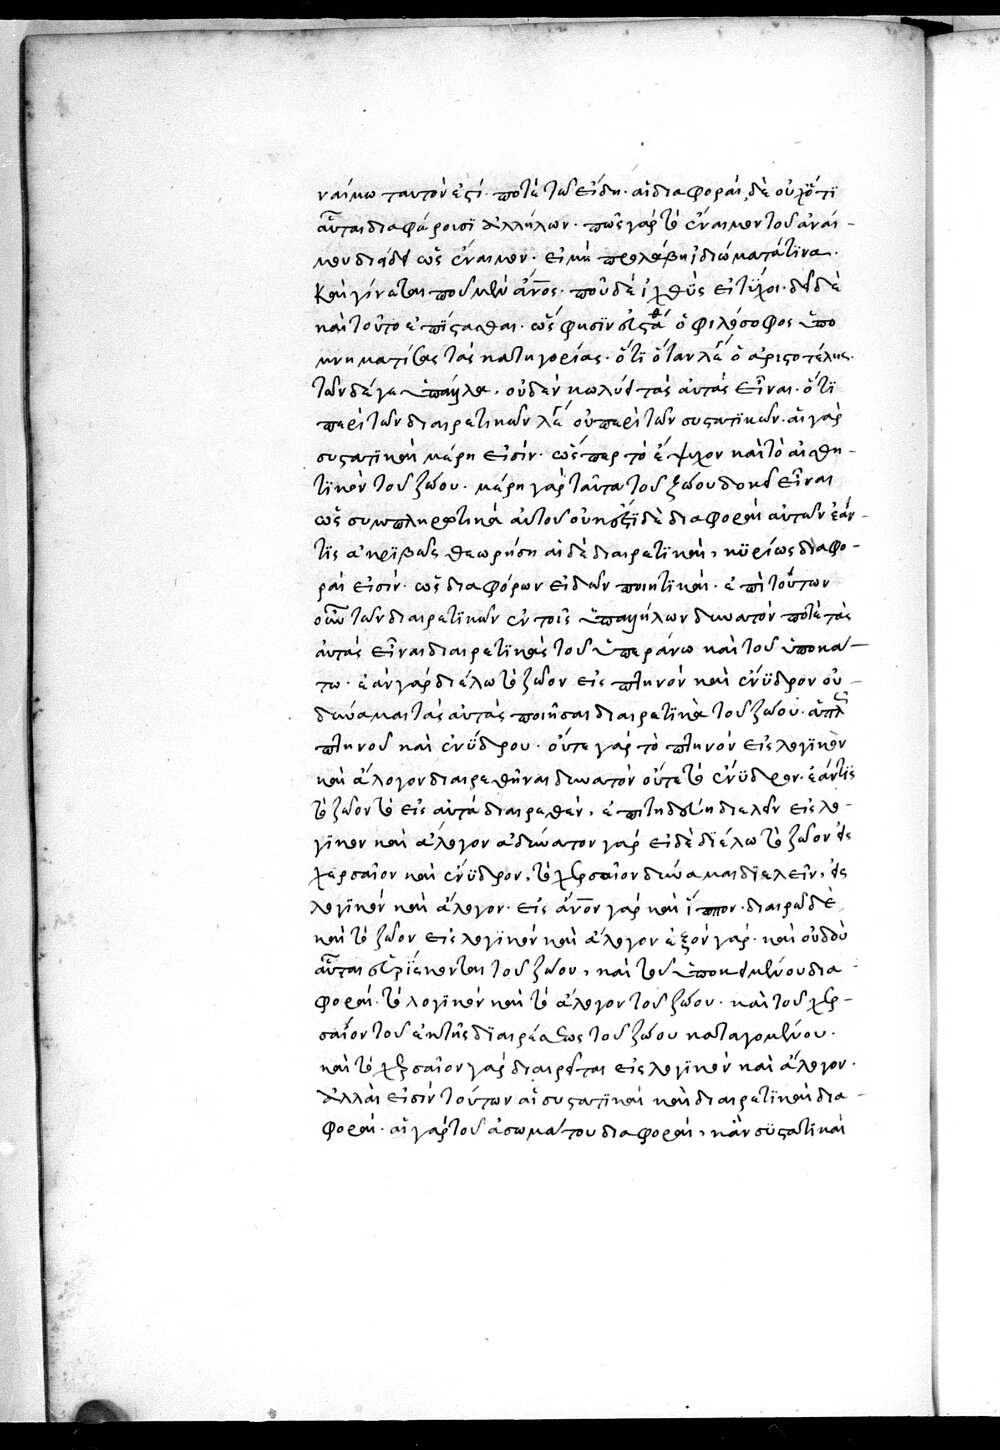 ναίμω ταυτόν ἐστί· ποτὲ τῶ εἴδη· αἱ διαφοραὶ δὲ οὐχ ὅτι
αὗται διαφέρουσι ἀλλήλων· πῶς γὰρ τὸ ἔναιμον τοῦ ἀναί-
μου διάδει ὡς ἔναιμον· εἰ μὴ προλάβη ἰδιώματά τινα·
καὶ γίνεται ποῦ μὲν ἄνος· ποῦ δὲ ἰχθῦς εἰ τύχοι· δεῖ δὲ
καὶ τοῦτο ἐπίστασθαι· ὥς φησιν ὁ φιλόσοφος ὑπο
μνηματίσας τὰς κατηγορίας· ὅτι ὅταν λέγ ὁ ἀριστοτέλης·
τῶν δέ γε ὑπάλληλα· οὐδὲν κωλύει τὰς αὐτὰς εἶναι· ὅτι
περὶ τῶν διαιρετικῶν λέγ οὐ περὶ τῶν συστατικῶν· αἱ γὰρ
συστατικαὶ μέρη εἰσίν· ὥσπερ τὸ ἔμψυχον καὶ τὸ αἰσθη-
τικὸν τοῦ ζώου· μέρη γὰρ ταῦτα τοῦ ζώου δοκεῖ εἶναι
ὡς συμπληρωτικὰ αὐτοῦ οὐκ δὲ διαφοραὶ αὐτῶν ἐάν-
τις ἀκριβῶς θεωρήση αἱ δὲ διαιρετικαὶ, κυρίως διαφο-
ραί εἰσιν· ὡς διαφόρων εἰδῶν ποιητικαί· ἐπὶ τούτων
οὖν τῶν διαιρετικῶν ἐν τοῖς ὑπαλλήλων δυνατόν ποτε τὰς
αὐτὰς εἶναι διαιρετικὰς τοῦ ὑπεράνω καὶ τοῦ ὑποκά-
τω· ἐὰν γὰρ διέλω τὸ ζῶον εἰς πτηνὸν καὶ ἔνυδρον οὐ-
δύναμαι τὰς αὐτὰς ποιῆσαι διαιρετικὰ τοῦ ζώου·
πτηνοῦ καὶ ἐνύδρου· οὔτε γὰρ τὸ πτηνὸν εἰς λογικὸν
καὶ ἄλογον διαιρεθῆναι δυνατὸν οὔτε τὸ ἔνυδρον· ἐάν τις
τὸ ζῶον τὸ εἰς αὐτὰ διαιρεθὲν, ἐπιτηδεύη διελεῖν εἰς λο-
γικὸν καὶ ἄλογον ἀδύνατον γάρ εἰ δὲ διέλω τὸ ζῶον εἰς
χερσαῖον καὶ ἔνυδρον, τὸ χερσαῖον δύναμαι διελεῖν, εἰς
λογικὸν καὶ ἄλογον· εἰς ἄνον γὰρ καὶ ἵππον· διαιρῶ δὲ
καὶ τὸ ζῶον εἰς λογικὸν καὶ ἄλογον ἐξὸν γάρ· καὶ οὐδὲν
αὗται εὑρίσκονται τοῦ ζώου, καὶ τοῦ ὑποκειμένου δια-
φοραί· τὸ λογικὸν καὶ τὸ ἄλογον τοῦ ζώου· καὶ τοῦ χερ-
σαίου τοῦ ἐκ τῆς διαιρέσεως τοῦ ζώου καταγομένου·
καὶ τὸ χερσαῖον γὰρ διαιρεῖται εἰς λογικὸν καὶ ἄλογον·
ἀλλαι εἰσὶν τούτων αἱ συστατικαὶ καὶ διαιρετικαὶ δια-
φοραί· αἱ γὰρ τοῦ ἀσωμάτου διαφοραὶ, κἂν συστατικαὶ